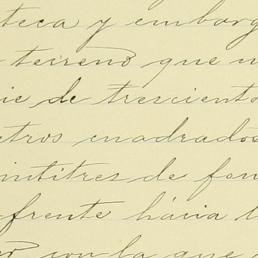 teca y embarg
terreno que m
ie de tresciento
etros cuadrados
intitres de fon
frente hácia l
con la que